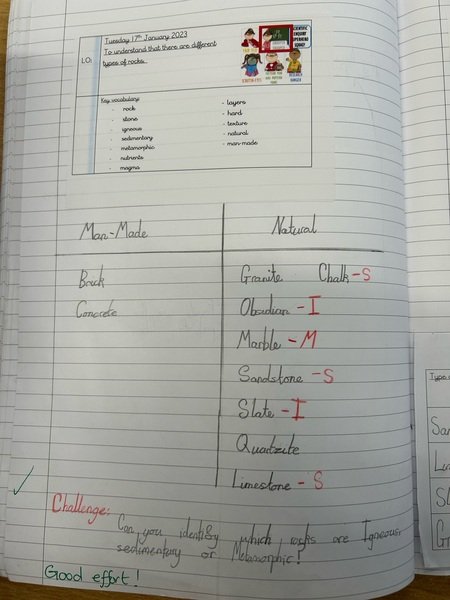 Tuesday 17th January 2023
L.O:
To understand that there are different
types of rocks.
Key vocabulary:
· rock
· stone
· igneous
· sedimentary
· metamorphic
· nutrients
· magma
· layers
· hard
· texture
· natural
· man-made
Man-Made
Natural
Brick
Concrete
Granite Chalk - S
Obsidian - I
Marble - M
Sandstone - S
Slate - I
Quartzite
Limestone - S
Challenge:
Can you identify which rocks are Igneous,
sedimentary or Metamorphic?
Good effort!